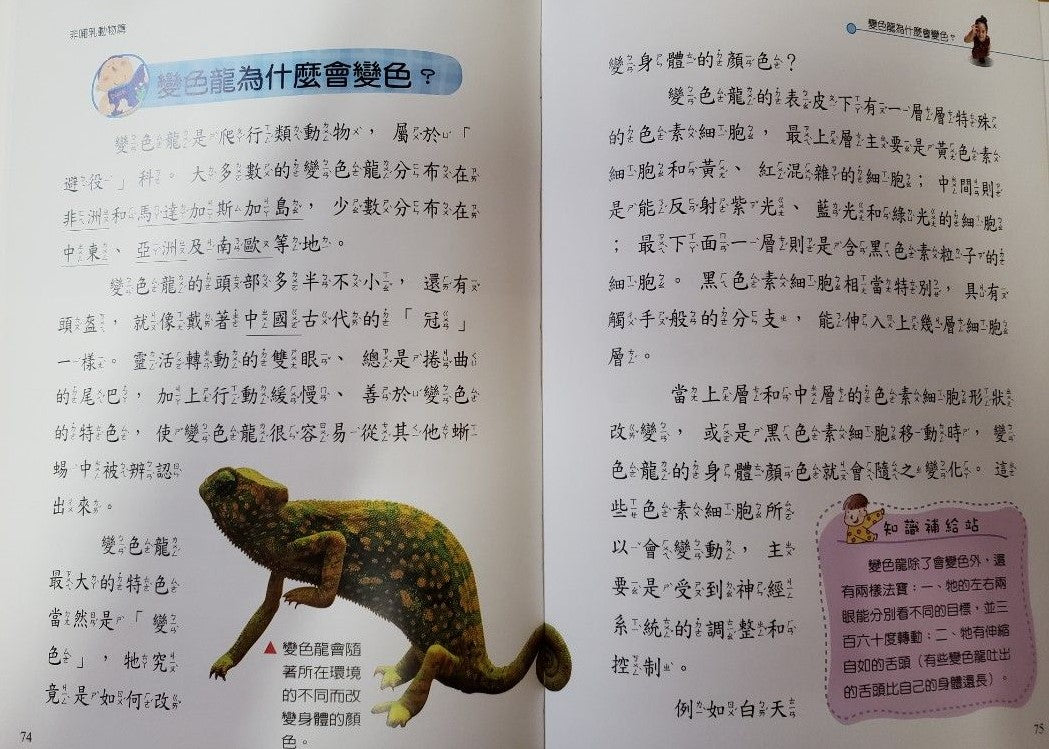 非哺乳動物篇
變色龍為什麼會變色？
變色龍是爬行類動物，屬於「
避役」科。大多數的變色龍分布在
非洲和馬達加斯加島，少數分布在
中東、亞洲及南歐等地。
變色龍的頭部多半不小，還有
頭盔，就像戴著中國古代的「冠」
一樣。靈活轉動的雙眼、總是捲曲
的尾巴，加上行動緩慢、善於變色
的特色，使變色龍很容易從其他蜥
蜴中被辨認
出來。
變色龍
最大的特色
當然是「變
色」，牠究
竟是如何改
▲變色龍會隨
著所在環境
的不同而改
變身體的顏
色。
74
變色龍為什麼會變色？
變身體的顏色？
變色龍的表皮下有一層層特殊
的色素細胞，最上層主要是黃色素
細胞和黃、紅混雜的細胞；中間則
是能反射紫光、藍光和綠光的細胞
；最下面一層則是含黑色素粒子的
細胞。黑色素細胞相當特別，具有
觸手般的分支，能伸入上幾層細胞
層。
當上層和中層的色素細胞形狀
改變，或是黑色素細胞移動時，變
色龍的身體顏色就會隨之變化。這
些色素細胞所
以會變動，主
要是受到神經
系統的調整和
控制。
例如白天
知識補給站
變色龍除了會變色外，還
有兩樣法寶：一、牠的左右兩
眼能分別看不同的目標，並三
百六十度轉動；二、牠有伸縮
自如的舌頭（有些變色龍吐出
的舌頭比自己的身體還長）。
75